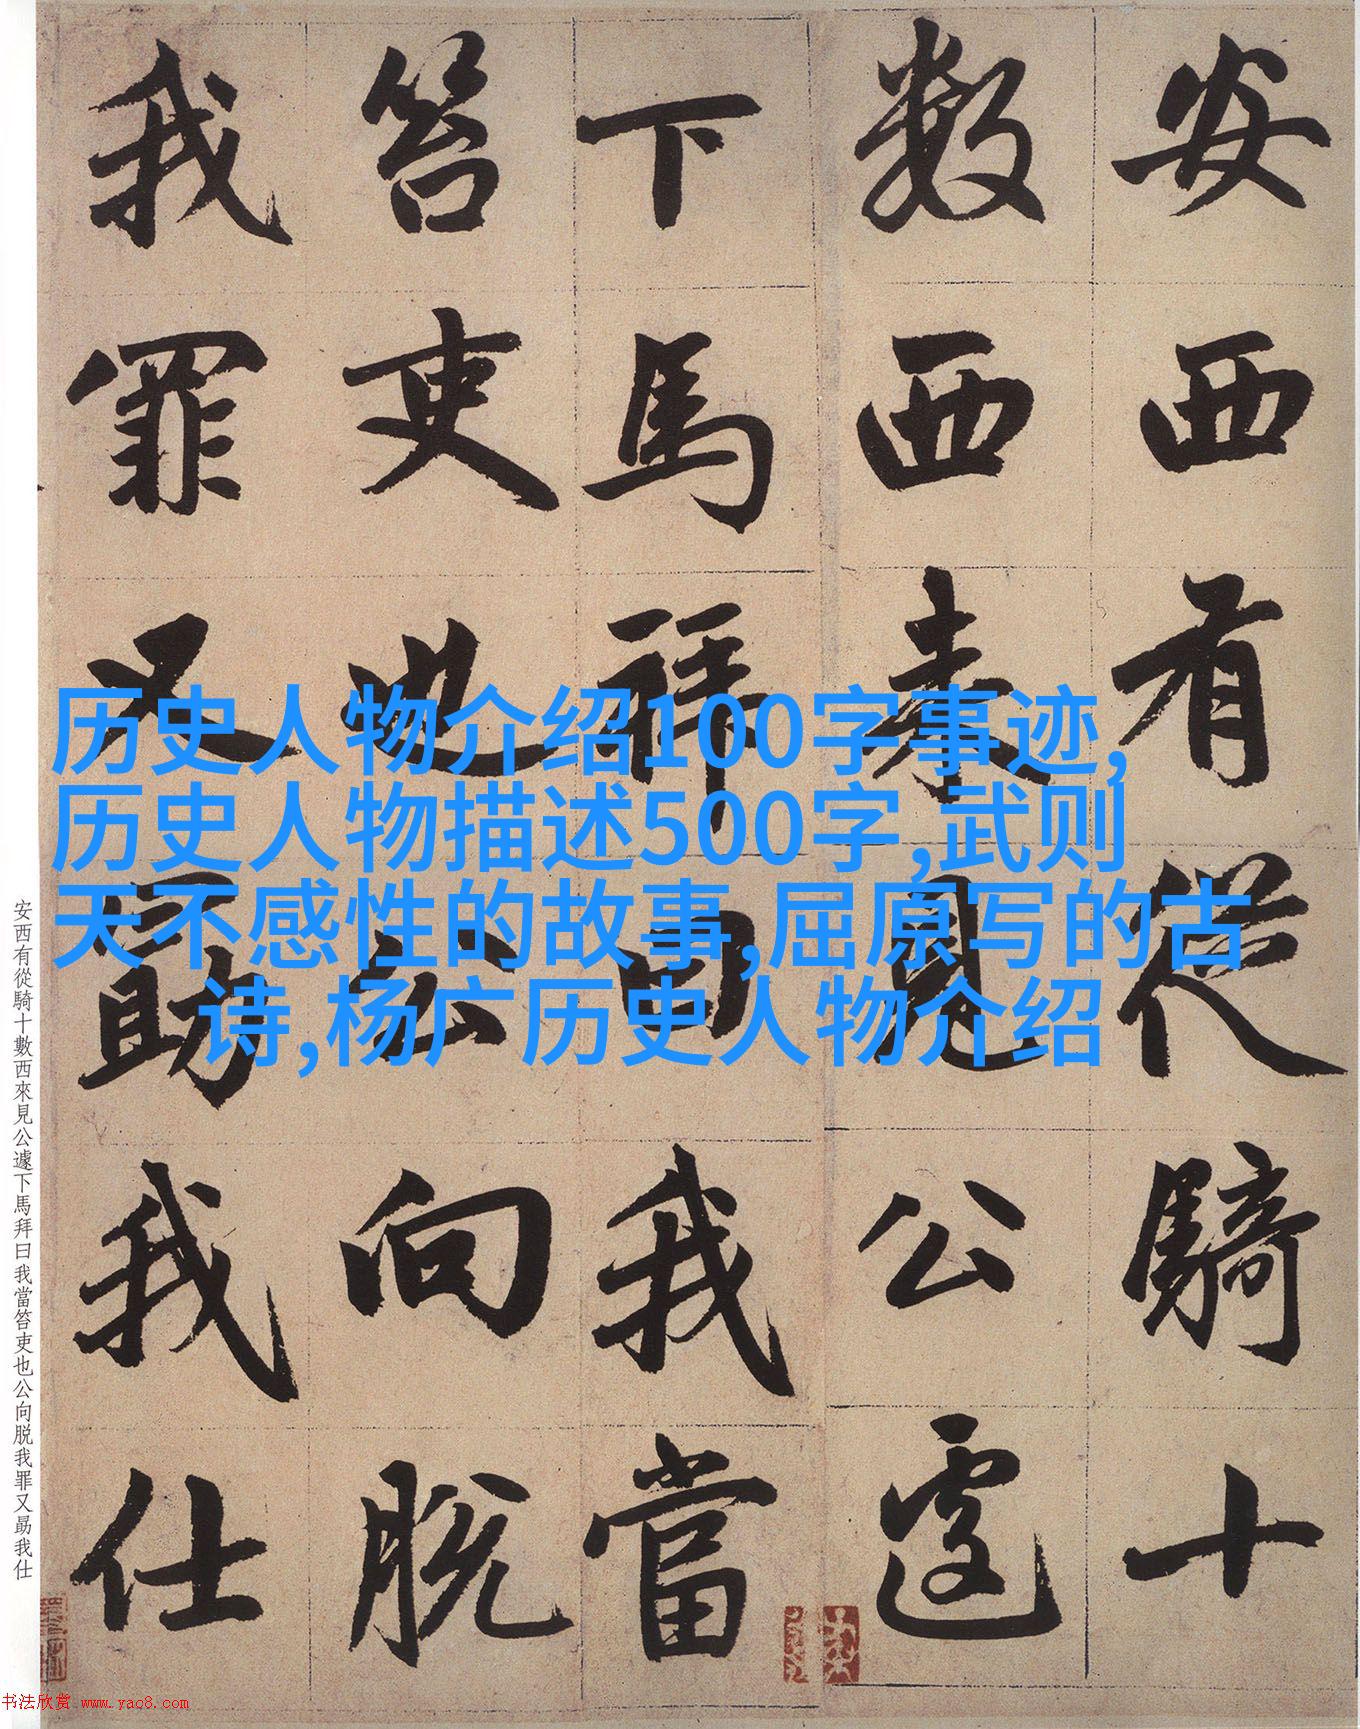 安西有從騎十
數西來見公遽
下馬拜曰我當
笞吏也公向脱
我罪又勗我仕
历史人物介绍100字事迹,
历史人物描述500字,武则
天不感性的故事,屈原写的古
诗,杨广历史人物介绍
安西有從騎十數西來見公遽下馬拜曰我當笞吏也公向脱我罪又勗我仕
书法欣赏 www.yac8.com